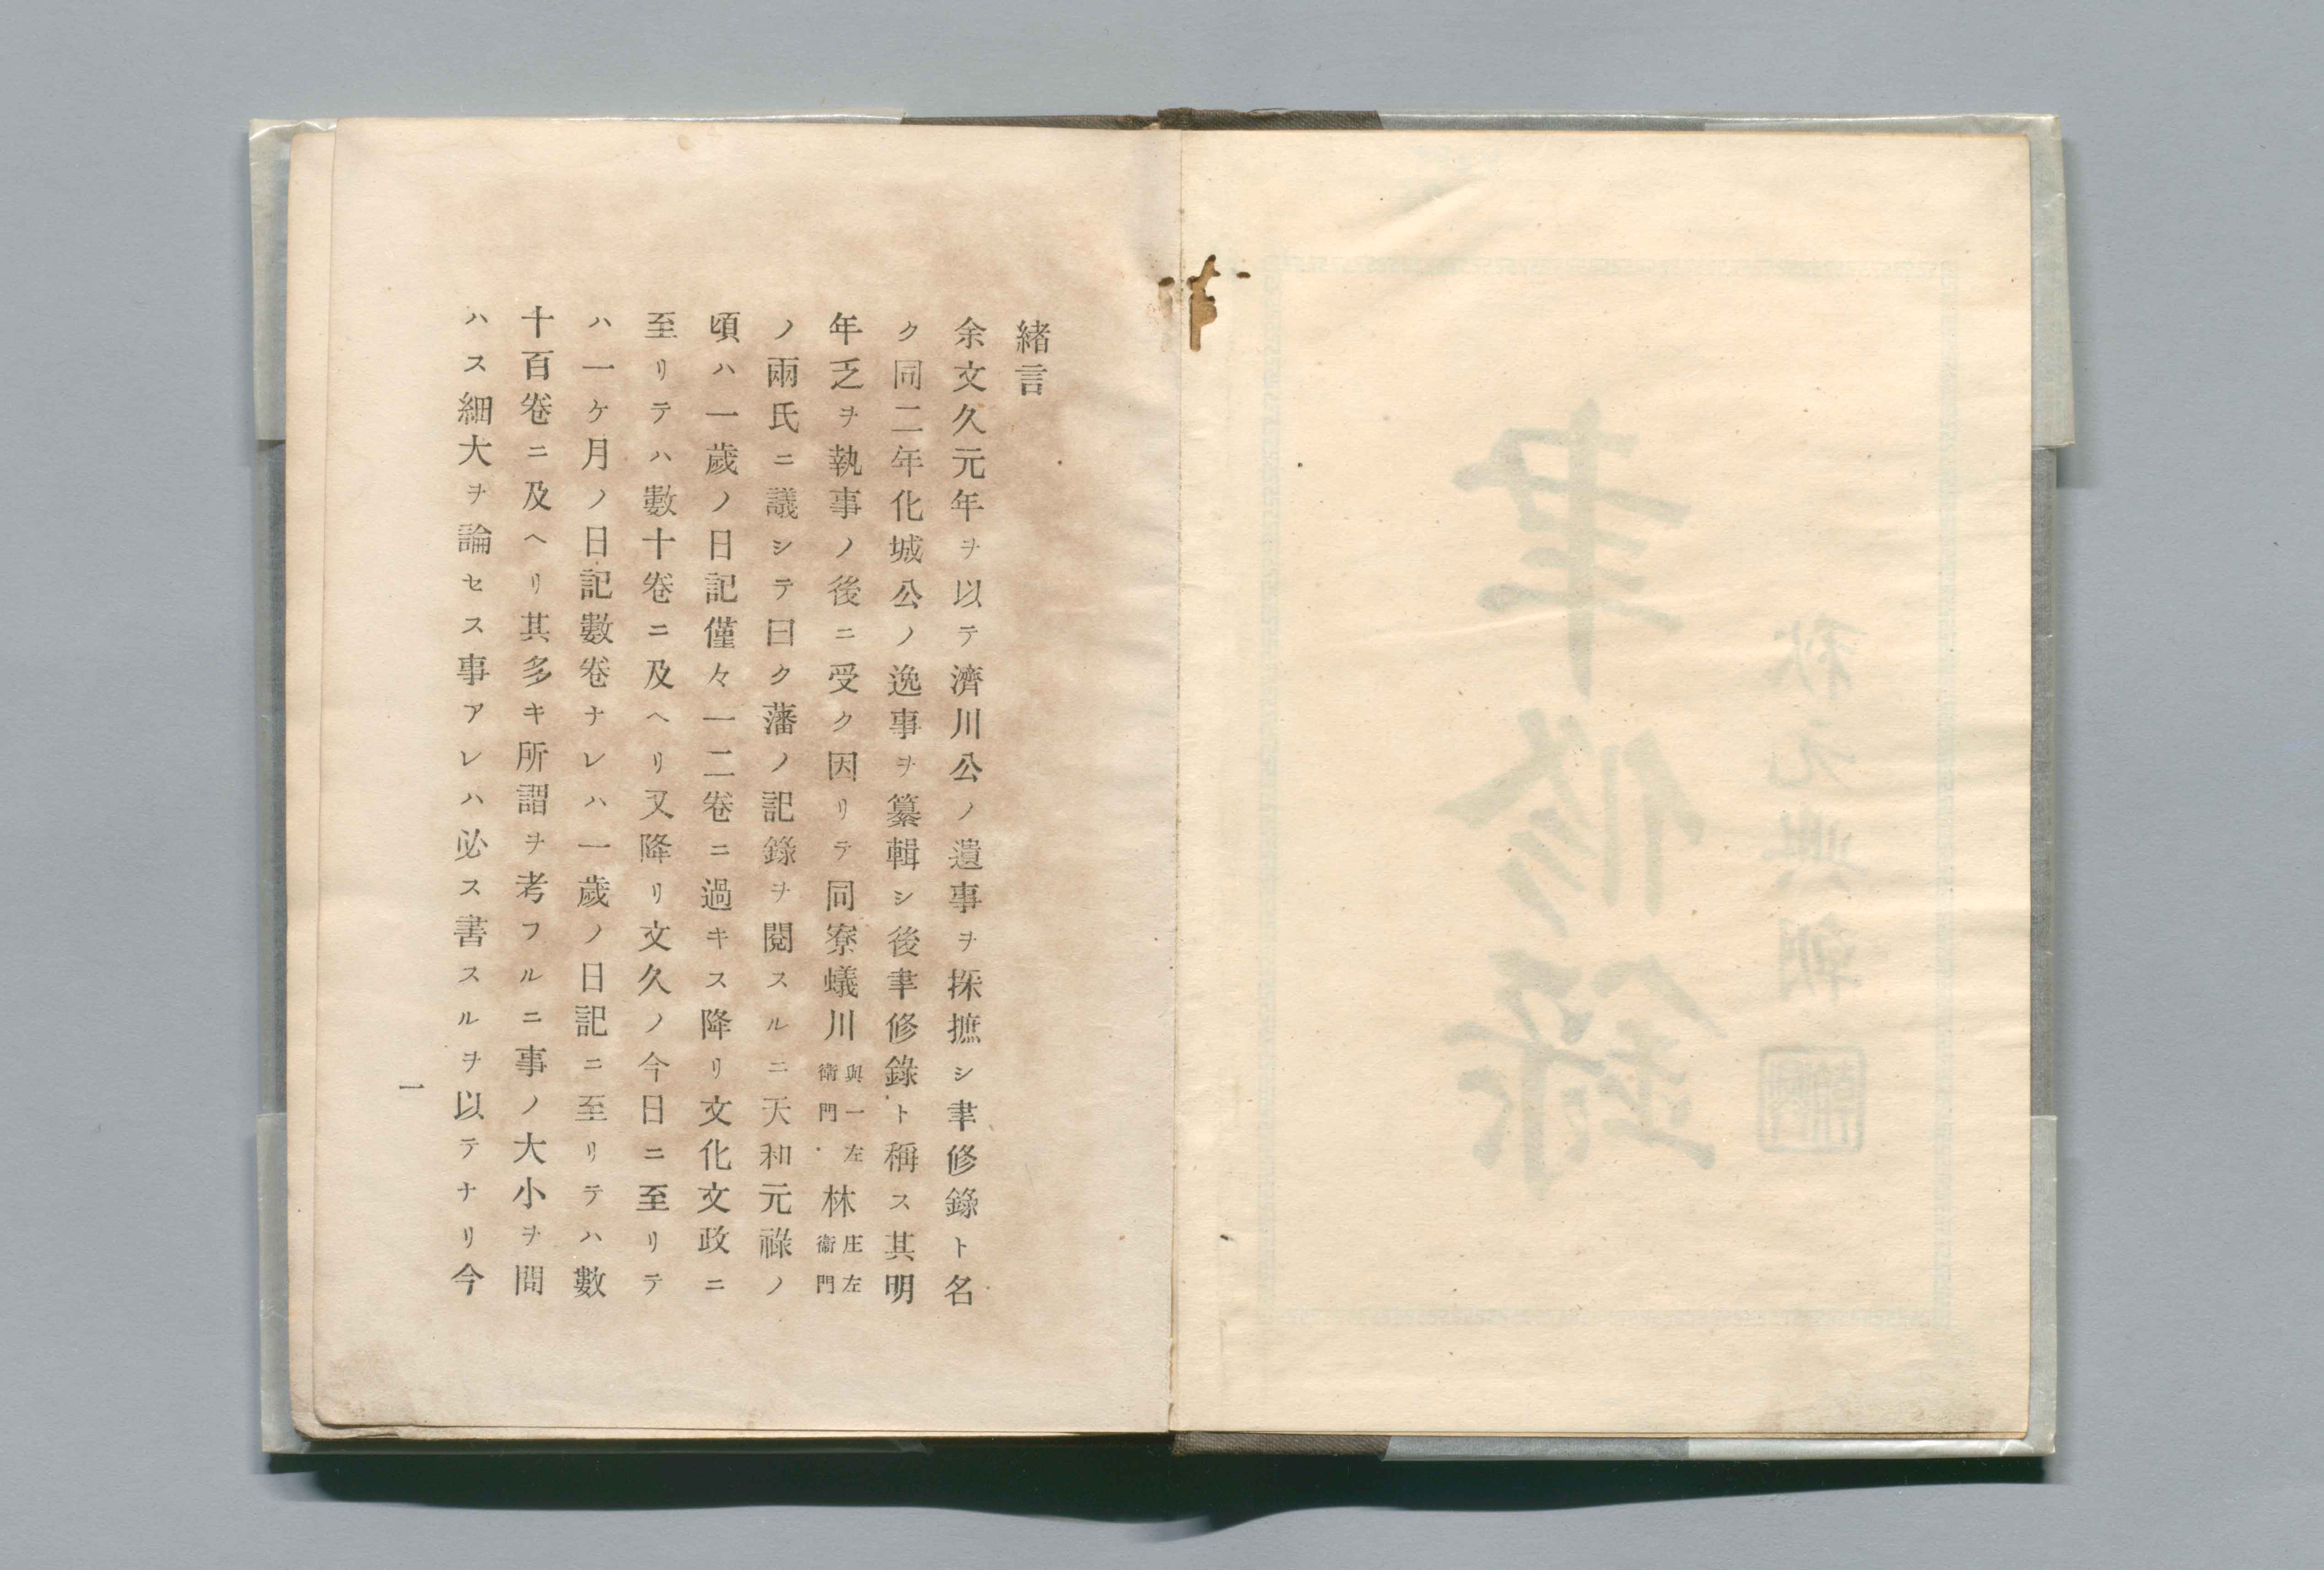 秋元興朝
聿修錄
緒言
余文久元年ヲ以テ濟川公ノ遺事ヲ採摭シ聿修錄ト名
ク同二年化城公ノ逸事ヲ纂輯シ後聿修錄ト稱ス其明
年乏ヲ執事ノ後ニ受ク因リテ同寮蟻川與一左衛門林庄左衛門
ノ兩氏ニ議シテ曰ク藩ノ記錄ヲ閱スルニ天和元祿ノ
頃ハ一歲ノ日記僅々一二卷ニ過キス降リ文化文政ニ
至リテハ數十卷ニ及ヘリ又降リ文久ノ今日ニ至リテ
ハ一ケ月ノ日記數卷ナレハ一歲ノ日記ニ至リテハ數
十百卷ニ及ヘリ其多キ所謂ヲ考フルニ事ノ大小ヲ問
ハス細大ヲ論セス事アレハ必ス書スルヲ以テナリ今
一